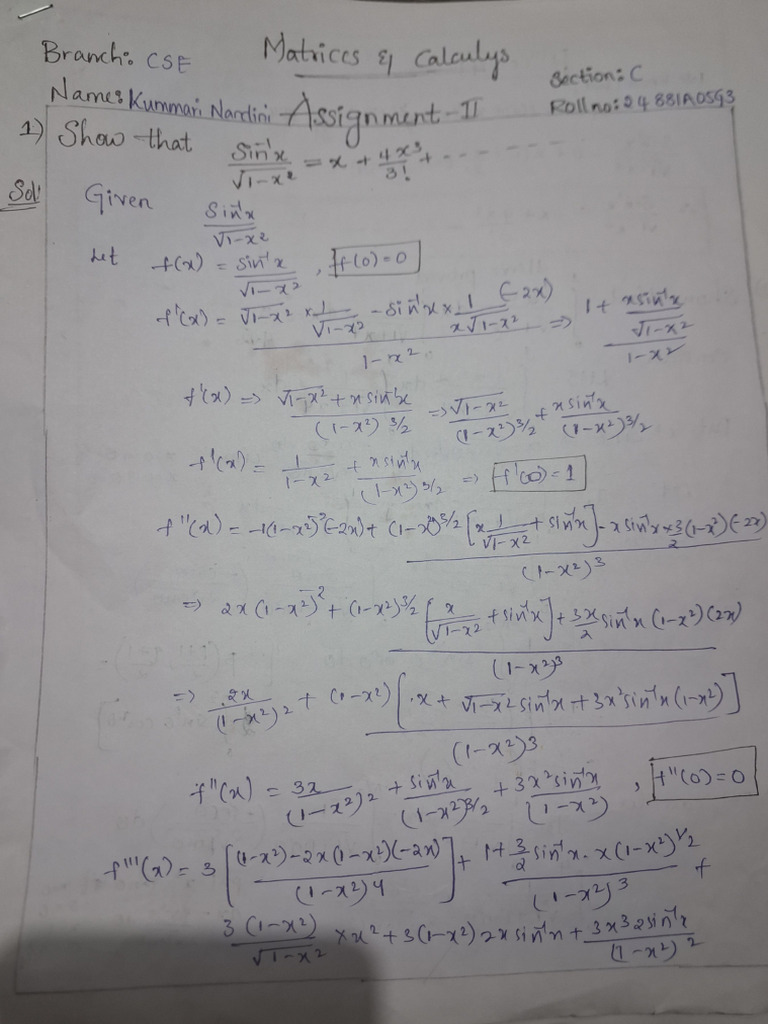 Matrices & Calculys
Branch: CSE
Section: C
Name: Kummari Nandini
Assignment-II
Roll no: 24881A05G3
1) Show that sin⁻¹x/√1-x² = x + 4x³/3! + - - - - - - -
Sol: Given sin⁻¹x/√1-x²
Let f(x) = sin⁻¹x/√1-x² , f(0)=0
f'(x) = (√1-x² × 1/√1-x² - sin⁻¹x × 1/x√1-x² (-2x))/(1-x²) => (1 + x sin⁻¹x/√1-x²)/(1-x²)
f'(x) => (√1-x² + x sin⁻¹x)/(1-x²)^3/2 => √1-x²/(1-x²)^3/2 + x sin⁻¹x/(1-x²)^3/2
f'(x) = 1/(1-x²) + x sin⁻¹x/(1-x²)^3/2 => f'(0)=1
f''(x) = -1(1-x²)⁻²(-2x) + ((1-x²)^3/2 [x 1/√1-x² + sin⁻¹x] - x sin⁻¹x × 3/2 (1-x²)(-2x))/(1-x²)³
=> 2x(1-x²)⁻² + ((1-x²)^3/2 [x/√1-x² + sin⁻¹x] + 3x/2 sin⁻¹x (1-x²)(2x))/(1-x²)³
=> 2x/(1-x²)² + (1-x²)[x + √1-x² sin⁻¹x + 3x² sin⁻¹x (1-x²)]/(1-x²)3
f''(x) = 3x/(1-x²)² + sin⁻¹x/(1-x²)^3/2 + 3x² sin⁻¹x/(1-x²) , f''(0)=0
f'''(x) = 3[((1-x²)-2x(1-x²)(-2x))/(1-x²)4] + (1+3/2 sin⁻¹x · x(1-x²)^1/2)/(1-x²)³ +
3(1-x²)/√1-x² × x² + 3(1-x²) 2x sin⁻¹x + 3x3 2sin⁻¹x/(1-x²)²